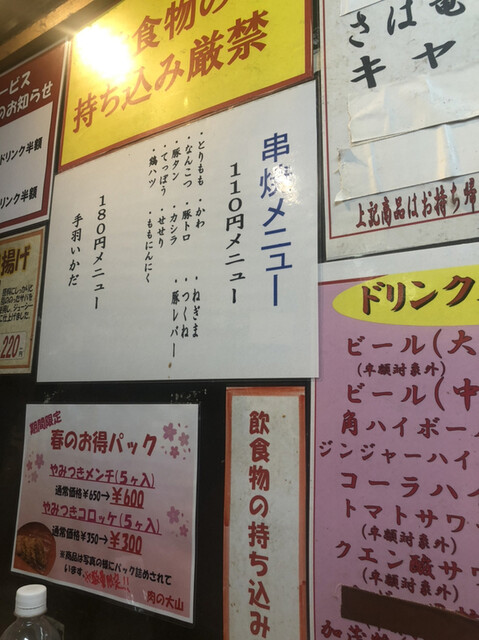 飲食物の
持ち込み厳禁
ービス
のお知らせ
ドリンク半額
リンク半額
揚げ
220円
串焼メニュー
110円メニュー
・とりもも・かわ・ねぎま
・なんこつ・豚トロ・つくね
・豚タン・カシラ・豚レバー
・てっぽう・せせり
・鶏ハツ・ももにんにく
180円メニュー
手羽いかだ
さば竜
キャ
上記商品はお持ち帰
ドリンク
ビール(大
(半額対象外)
ビール(中
角ハイボー
ジンジャーハイ
コーラハイ
トマトサワ
(半額対象外)
クエン酸サワ
(半額対象外)
期間限定
春のお得パック
やみつきメンチ(5ヶ入)
通常価格¥650→¥600
やみつきコロッケ(5ヶ入)
通常価格¥350→¥300
※商品は写真の様にパック詰めされて
います。
肉の大山
飲食物の持ち込み